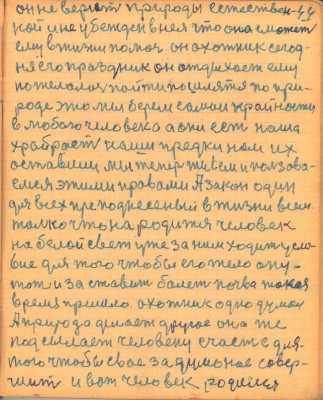 он не верит природы естествен- 44
ной и не убежден в ней что она может
ему в жизни помоч он охотник сегод-
ня его праздник он отдыхает ему
пожелалос пойти пошлятся по при-
роде это мы берем самои крайности
в любого человека а они ест наша
храбраст наши предки нам их
оставили мы тепер живем и ползова-
емся этими правами А закон один
для всех преподнесеный в жизни всем
толко что на родится человек
на белой свет уже за ним ходит усло-
вие для того чтобы его тело опу-
тат и заставит болет почва такая
время пришло охотник одно думал
А природа думает другое она же
подсылает человеку счастє для
того чтобы свое задуманое совер-
шит и вот человек родился